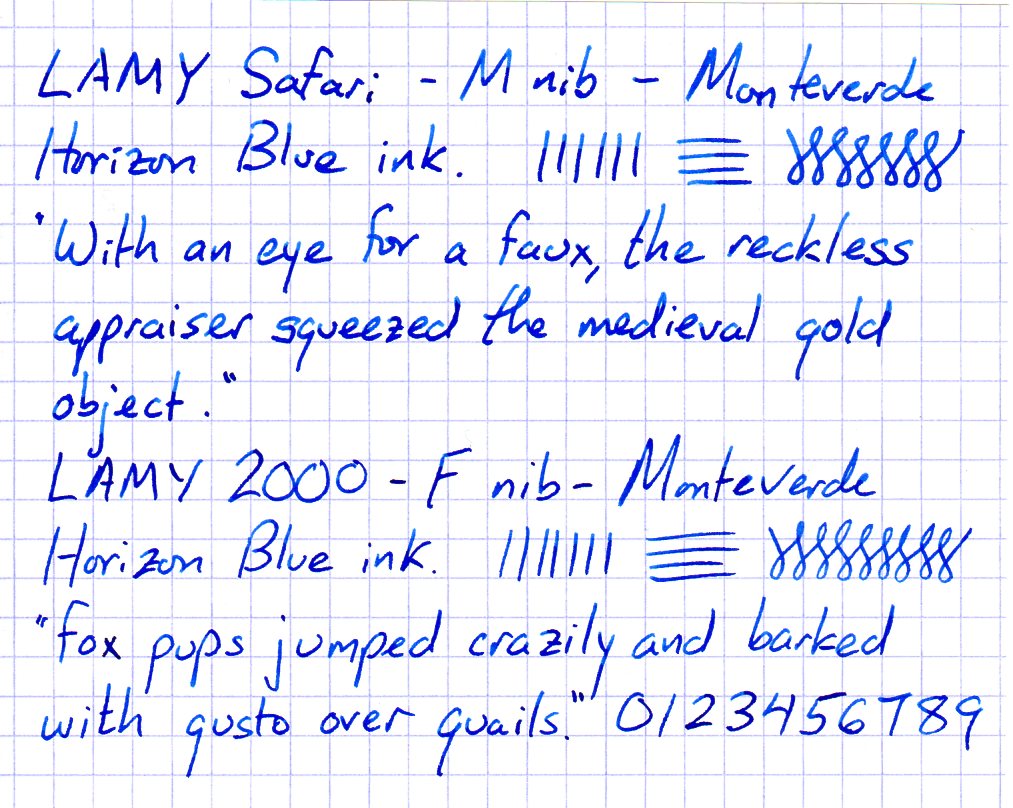 LAMY Safari - M nib - Monteverde
Horizon Blue ink.
"With an eye for a faux, the reckless
appraiser squeezed the medieval gold
object."
LAMY 2000 - F nib - Monteverde
Horizon Blue ink.
"Fox pups jumped crazily and barked
with gusto over quails." 0123456789